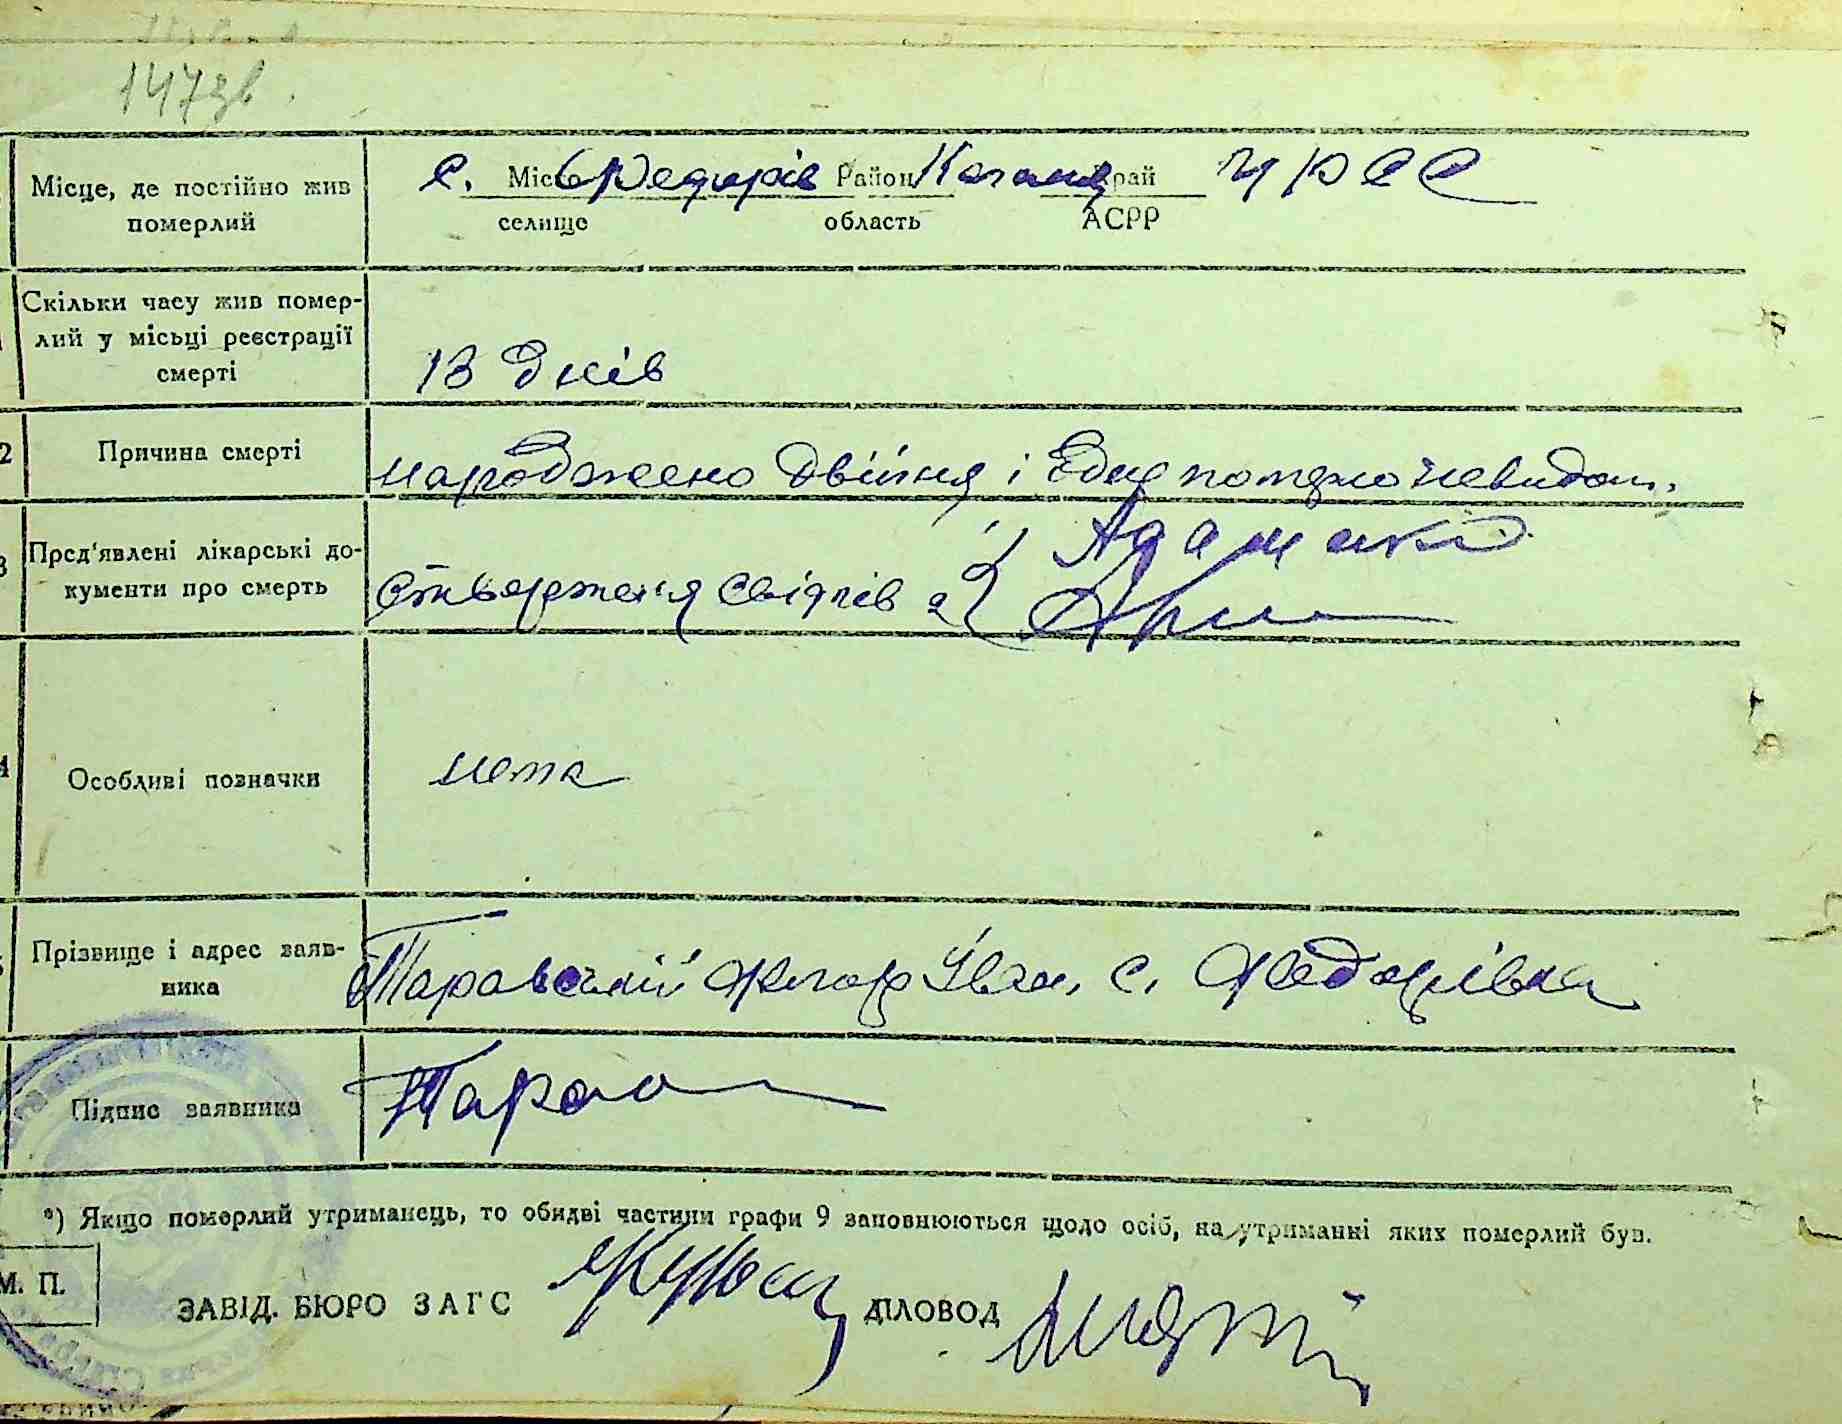 147зв.
Місце, де постійно жив
померлий
с. Місто Федорів Район Каганов Край УРСР
селище область АСРР
Скільки часу жив помер-
лий у місьці реєстрації
смерті
13 днів
2 Причина смерті
народжено двійня і
3 Пред'явлені лікарські до-
кументи про смерть
Ствердження свідків 2
Адаменко
4 Особливі позначки
нема
Прізвище і адрес заяв-
ника
Таравський Федор Іван. с. Федорівка
Підпис заявника
Тара
*) Якщо померлий утриманець, то обидві частини графи 9 заповнюються щодо осіб, на утриманні яких померлий був.
М. П.
ЗАВІД. БЮРО ЗАГС ДІЛОВОД